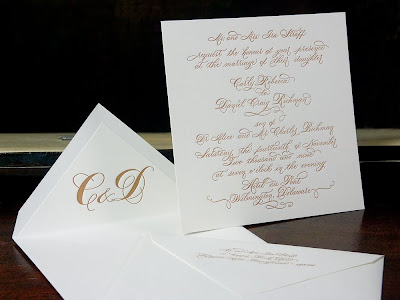 Mr and Mrs Ira Straff
request the honour of your presence
at the marriage of their daughter
Carly Rebecca
to
Daniel Craig Buchman
son of
Dr Alice and Mr Charles Buchman
Saturday, the fourteenth of November
Two thousand and nine
at seven o'clock in the evening
Hotel du Pont
Wilmington, Delaware
C&D